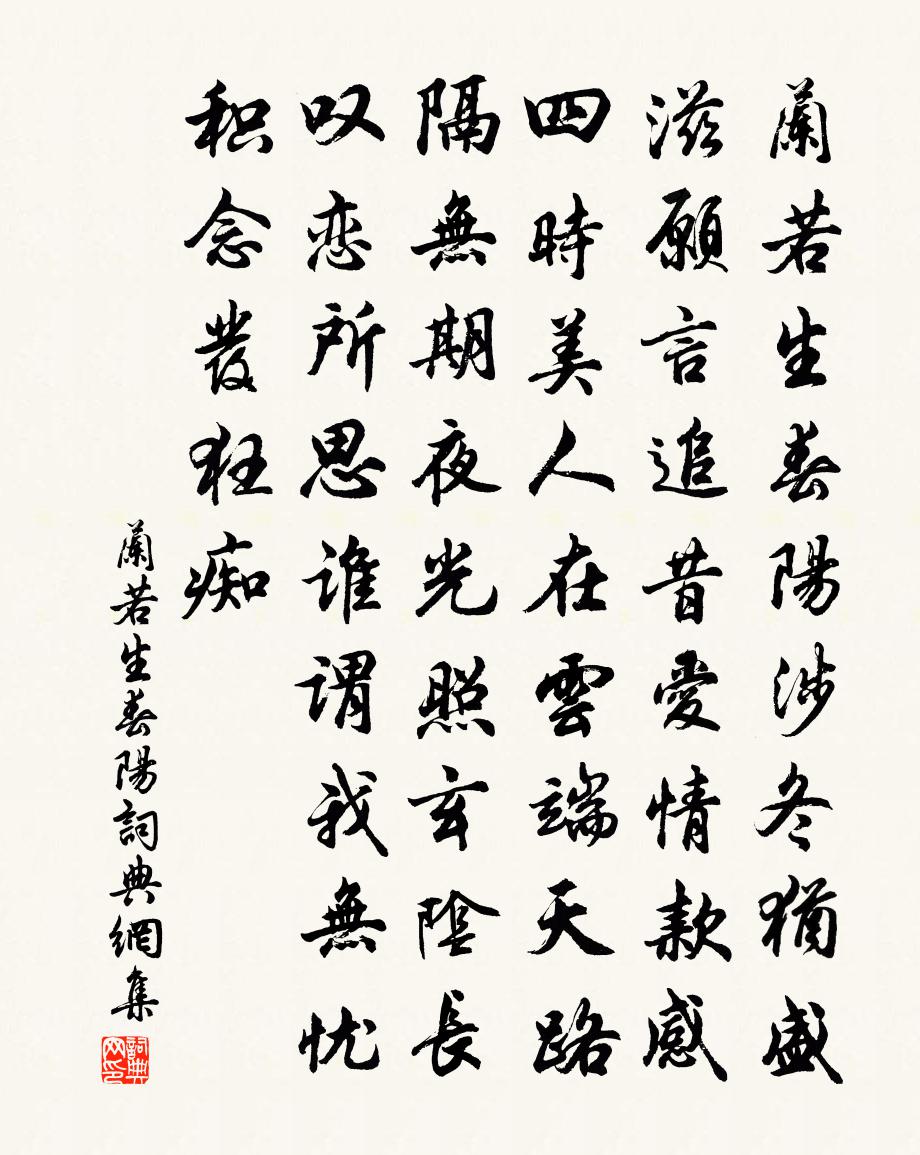 蘭若生春陽涉冬猶盛
滋願言追昔愛情款感
四時美人在雲端天路
隔無期夜光照玄陰長
叹恋所思谁谓我無忧
积念發狂痴
蘭若生春陽詞典網集
詞典网印